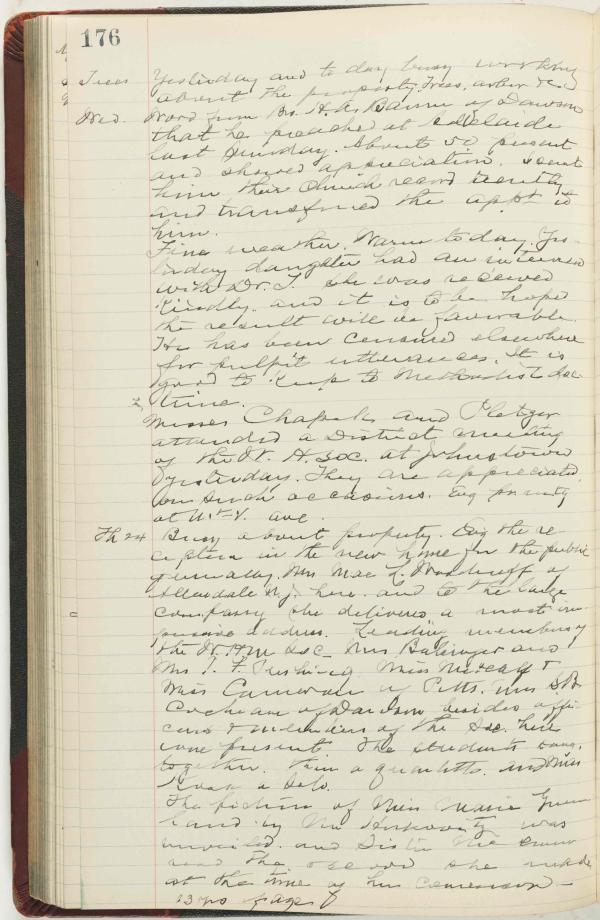 176
Trees Yesterday and to day busy working
about the property. Trees, arbor &c.
Wed. Word from Bro. H. A. Baum of Dawson
that he preached at Adelaide
last Sunday. About 50 present
and showed appreciation. I sent
him their Church record recently
and transferred the appt to
him.
Fine weather. Warm today. Yes-
terday daughter had an interview
with Dr. T. she was received
kindly. and it is to be hoped
the result will be favorable.
He has been censured elsewhere
for pulpit utterances. It is
good to keep to Methodist doc-
trine.
Misses Chapek and Pletzer
attended a District meeting
of the W. H. Soc. at Johnstown
yesterday. They are appreciated
on such occasions. Evg
at Wn. Y. ave.
Th 24 Busy about property. Evg the re-
ception in the new home for the public
generally. Mrs Mae L. Woodruff of
Allendale N.J. here. and to the large
company she delivered a most im-
pressive address. Leading members of
the W.H.M Soc - Mrs and
Mrs T. F. Pershing Miss Metcalf &
Miss Cameron of Pitts. Mrs S.B.
Cochran of Dawson besides offi-
cers & members of the Soc. here
were present. The students sang
together. then a quartette. and Miss
a solo.
The picture of Miss Marie Green
land by Mr was
unveiled. and Sister
read the record she made
at the time of her conversion -
13 yrs of age.